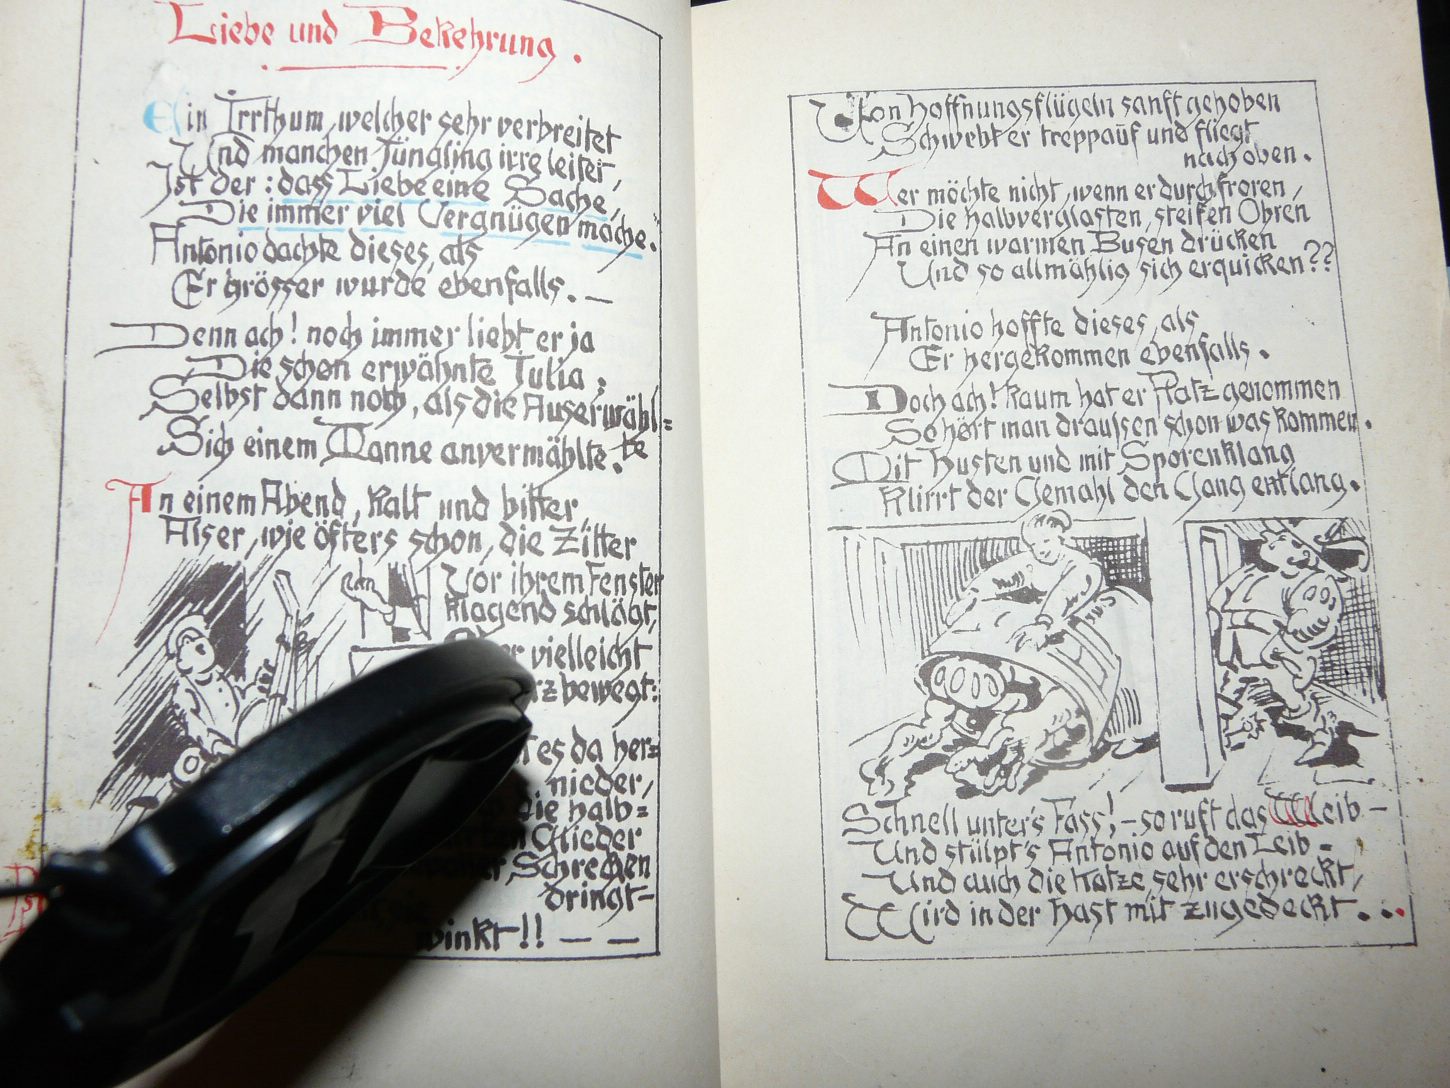 Liebe und Bekehrung.
Ein Irrthum, welcher sehr verbreitet
Und manchen Jüngling irre leitet,
Ist der: dass Liebe eine Sache,
Die immer viel Vergnügen mache."
Antonio dachte dieses, als
Er grösser wurde ebenfalls. —
Denn ach! noch immer liebt er ja
Die schon erwähnte Julia;
Selbst dann noch, als die Auserwähl=
te
Sich einem Manne anvermählte.
An einem Abend, kalt und bitter
Als er, wie öfters schon, die Zitter
Vor ihrem Fenster
klagend schlägt,
vielleicht
bewegt:
es da her=
nieder,
die halb=
Glieder
Schrecken
dringt—
winkt!! — —
Von Hoffnungsflügeln sanft gehoben
Schwebt er treppauf und fliegt
nach oben.
Wer möchte nicht, wenn er durchfroren,
Die halbverglasten, steifen Ohren
An einen warmen Busen drücken
Und so allmählig sich erquicken??
Antonio hoffte dieses, als
Er hergekommen ebenfalls.
Doch ach! kaum hat er Platz genommen
So hört man draussen schon was kommen.
Mit Husten und mit Sporenklang
Klirrt der Gemahl den Gang entlang.
Schnell unter's Fass! — so ruft das Weib —
Und stülpt's Antonio auf den Leib —
Und auch die Katze, sehr erschreckt,
Wird in der Hast mit zugedeckt...